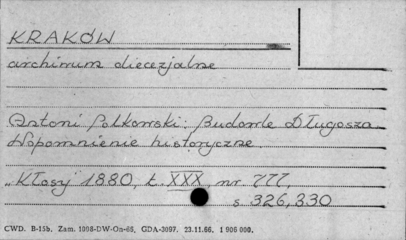 KRAKÓW
archiwum diecezjalne
Antoni Polkowski: Budowle Długosza.
Wspomnienie historyczne.
"Kłosy" 1880, t. XXX, nr. 777,
s. 326, 330
CWD. B-15b. Zam. 1008-DW-On-66, GDA-3097. 23.11.66. 1 906 000.